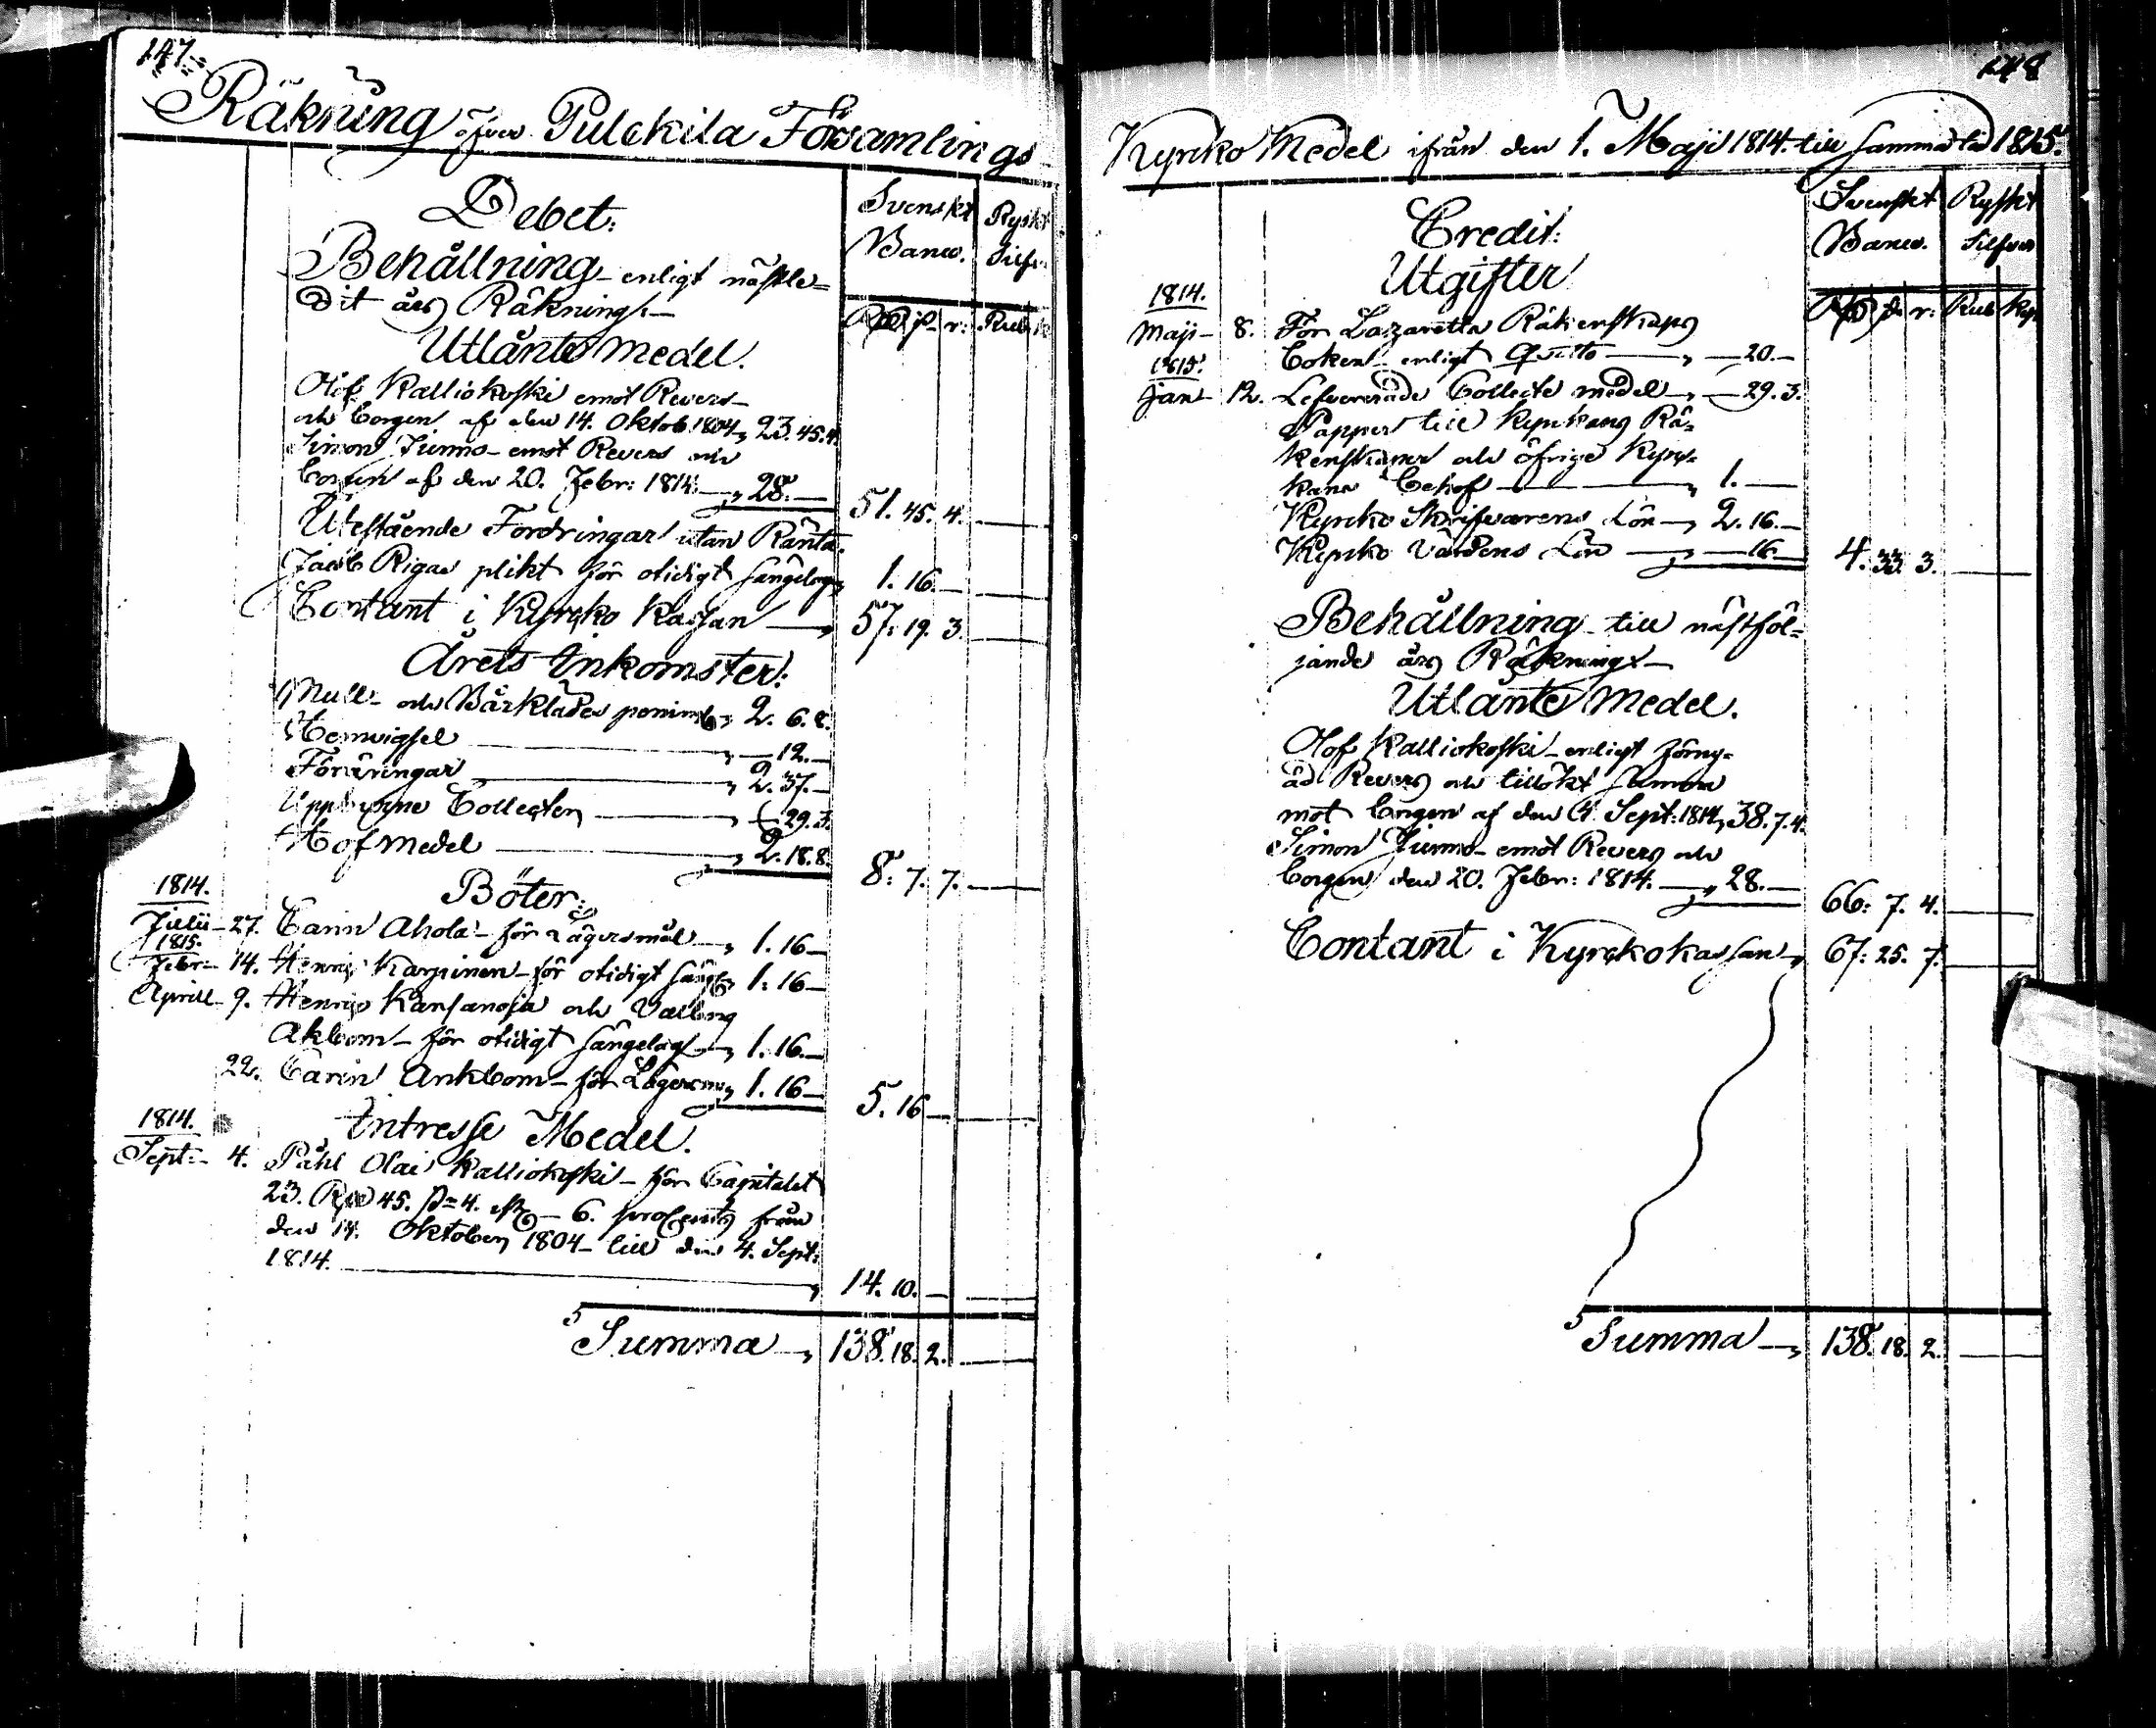 147.
Räkning öfver Pulckila Församlings
Debet.
Svenskt Banco.
Ryskt Silfv.
Behållning enligt nästle=
dit års Räkning.
Rub
Utlånte Medel.
Olof Kalliokoski emot Revers
och Borgen af den 14. Oktob. 1804, 23. 45. 4.
Simon Junno emot Revers och
Borgen af den 20. Febr: 1814. — 28. — 51. 45. 4.
Utestående Fordringar utan Ränta.
Jacob Rigas plikt för otidigt sängelag 1. 16. —
Contant i Kyrcko Kassan — 57: 19. 3.
Årets Inkomster:
Mull- och Bårklädes penning 2. 6. 8.
Hemvigsel — 12. —
Föräringar — 2. 37. —
Uppburne Collecter — 29. 3.
Hof medel — 2. 18. 8. 8: 7. 7.
Böter:
1814.
Julii 27. Carin Ahola för Lägersmål — 1. 16 —
1815.
Febr: 14. Henric Karpinen för otidigt säng 1: 16 —
Aprill 9. Henric Kansanoja och Valborg
Akbom för otidigt sängelag — 1. 16. —
22. Carin Ankbom för Lägersm 1. 16 — 5. 16 —
1814.
Intresse Medel.
Sept: 4. Påhl Olai Kalliokoski för Capitalet
23. Rd 45. s 4. r 6. procents från
den 14. Oktober 1804 till den 4. Sept:
1814. — 14. 10. —
Summa — 138. 18. 2.
148
Kyrcko Medel ifrån den 1. Maji 1814. till samma tid 1815.
Credit:
Svenskt Banco.
Ryskt Silfver
Utgifter
Rub Kop
1814.
Maji 8. För Lazaretts Räkenskaps
Boken enligt qvitto — 20. —
1815.
Jan 12. Lefvererade Collecte medel — 29. 3.
Papper till Kyrkans Rä=
kenskaper och öfrige Kyr=
kans behof — 1. —
Kyrcko Skrifvarens Lön — 2. 16. —
Kyrcko Värdens Lön — 16 — 4. 33. 3.
Behållning till nästföl=
jande års Räkning
Utlånte Medel.
Olof Kalliokoski enligt förny=
ad Revers och tillökt Summa
mot Borgen af den 4. Sept: 1814, 38. 7. 4.
Simon Junno emot Revers och
Borgen den 20. Febr: 1814. — 28. — 66: 7. 4.
Contant i Kyrckokassan 67: 25. 7.
Summa — 138. 18. 2.